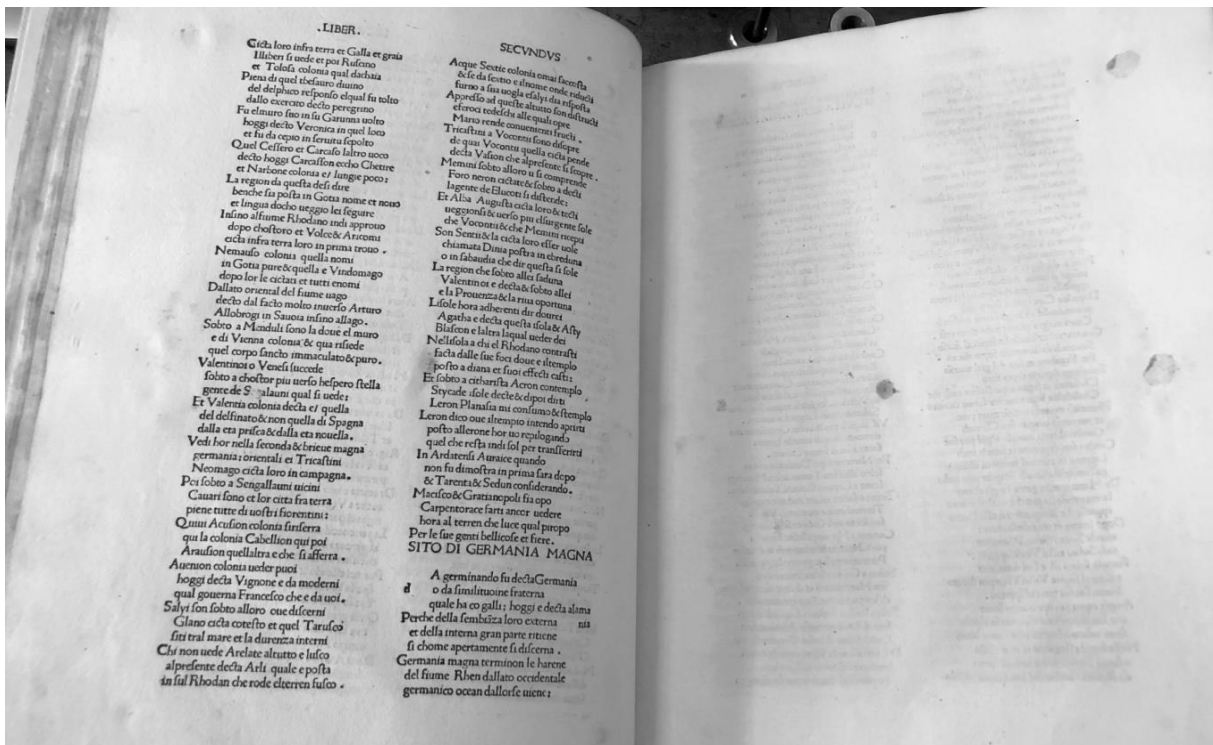 .LIBER.
Cicta loro infra terra et Galla et graia
Illiberi si uede et poi Ruscino
et Tolosa colonia qual dachaia
Piena di quel thesauro diuino
del delphico responso elqual fu tolto
dallo exercito decto peregrino
Fu elmuro suo in su Garunna uolto
hoggi decto Veronica in quel loco
et fu da cepio in seruitu sepolto
Quel Cessero et Carcaso laltro uoco
decto hoggi Carcasson eccho Chetire
et Narbone colonia e/ lungie poco:
La region da questa desi dire
benche sia posta in Gotia nome et nouo
et lingua docho ueggio lei seguire
Insino alfiume Rhodano indi approuo
dopo chostoro et Volce& Aricomi
cicta infra terra loro in prima trouo .
Nemauso colonia quella nomi
in Gotia pure&quella e Vindomago
dopo lor le cictati et tutti enomi
Dallato oriental del fiume uago
decto dal facto molto inuerso Arturo
Allobrogi in Sauoia insino allago.
Sobto a Menduli sono la doue el muro
e di Vienna colonia & qua risiede
quel corpo sancto immaculato&puro.
Valentinoi o Venesi succede
sobto a chostor piu uerso hespero stella
gente de S galauni qual si uede:
Et Valentia colonia decta e/ quella
del delfinato&non quella di Spagna
dalla eta prisca&dalla eta nouella.
Vedi hor nella seconda&brieue magna
germania: orientali ei Tricastini
Neomago cicta loro in campagna.
Poi sobto a Sengallauni uicini
Cauari sono et lor citta fra terra
piene tutte di uostri fiorentini:
Quiui Acusion colonia sinserra
qui la colonia Cabellion qui poi
Arausion quellaltra e che si afferra .
Auenion colonia ueder puoi
hoggi decta Vignone e da moderni
qual gouerna Francesco che e da uoi.
Salyi son sobto alloro oue discerni
Glano cicta cotesto et quel Tarusco
siti tral mare et la durenza interni
Chi non uede Arelate altutto e lusco
alpresente decta Arli quale e posta
in sul Rhodan che rode elterren fusco .
SECVNDVS
Acque Sextie colonia omai saccosta
&se da sextio e ilnome onde riducti
furno a sua uogla esalyi dia risposta
Appresso ad queste altutto son distructi
eferoci tedeschi alle quali opre
Mario rende conuenienti fructi .
Tricastini a Vocontii sono disopre
de quai Vocontii quella cicta pende
decta Vasion che alpresente si scopre .
Memini sobto alloro u si comprende
Foro neron cictate & sobto a decti
lagente de Elucoti si distende:
Et Alba Augusta cicta loro & tecti
ueggionsi & uerso piu elsurgente sole
che Vocontii&che Memini ricepti
Son Sentii&la cicta loro esser uole
chiamata Dinia postra in ebreduna
o in sabaudia che dir questa si sole
La region che sobto allei saduna
Valentinoi e decta & sobto allei
e la Prouenza &la riua oportuna
Lisole hora adherenti dir dourei
Agatha e decta questa isola & Asty
Blascon e laltra laqual ueder dei
Nellisola a chi el Rhodano contrasti
facta dalle sue foci doue e iltemplo
posto a diana et suoi effecti casti:
Et sobto a citharista Acron contemplo
Stycade isole decte & dipoi dirti
Leron Planasia mi consumo & stemplo
Leron dico oue iltempio intendo aprirti
posto allerone hor uo repilogando
quel che resta indi sol per transferirti
In Ardatensi Auraice quando
non fu dimostra in prima sara dopo
& Tarenta & Sedun considerando.
Macisco & Gratianopoli fia opo
Carpentorace farti ancor uedere
hora al terren che luce qual piropo
Per le sue genti bellicose et fiere.
SITO DI GERMANIA MAGNA
d
A germinando fu decta Germania
o da similituoine fraterna
quale ha co galli; hoggi e decta alama
nia
Perche della sembiiza loro externa
et della interna gran parte ritiene
si chome apertamente si discerna .
Germania magna terminon le harene
del fiume Rhen dallato occidentale
germanico ocean dallorse uiene: